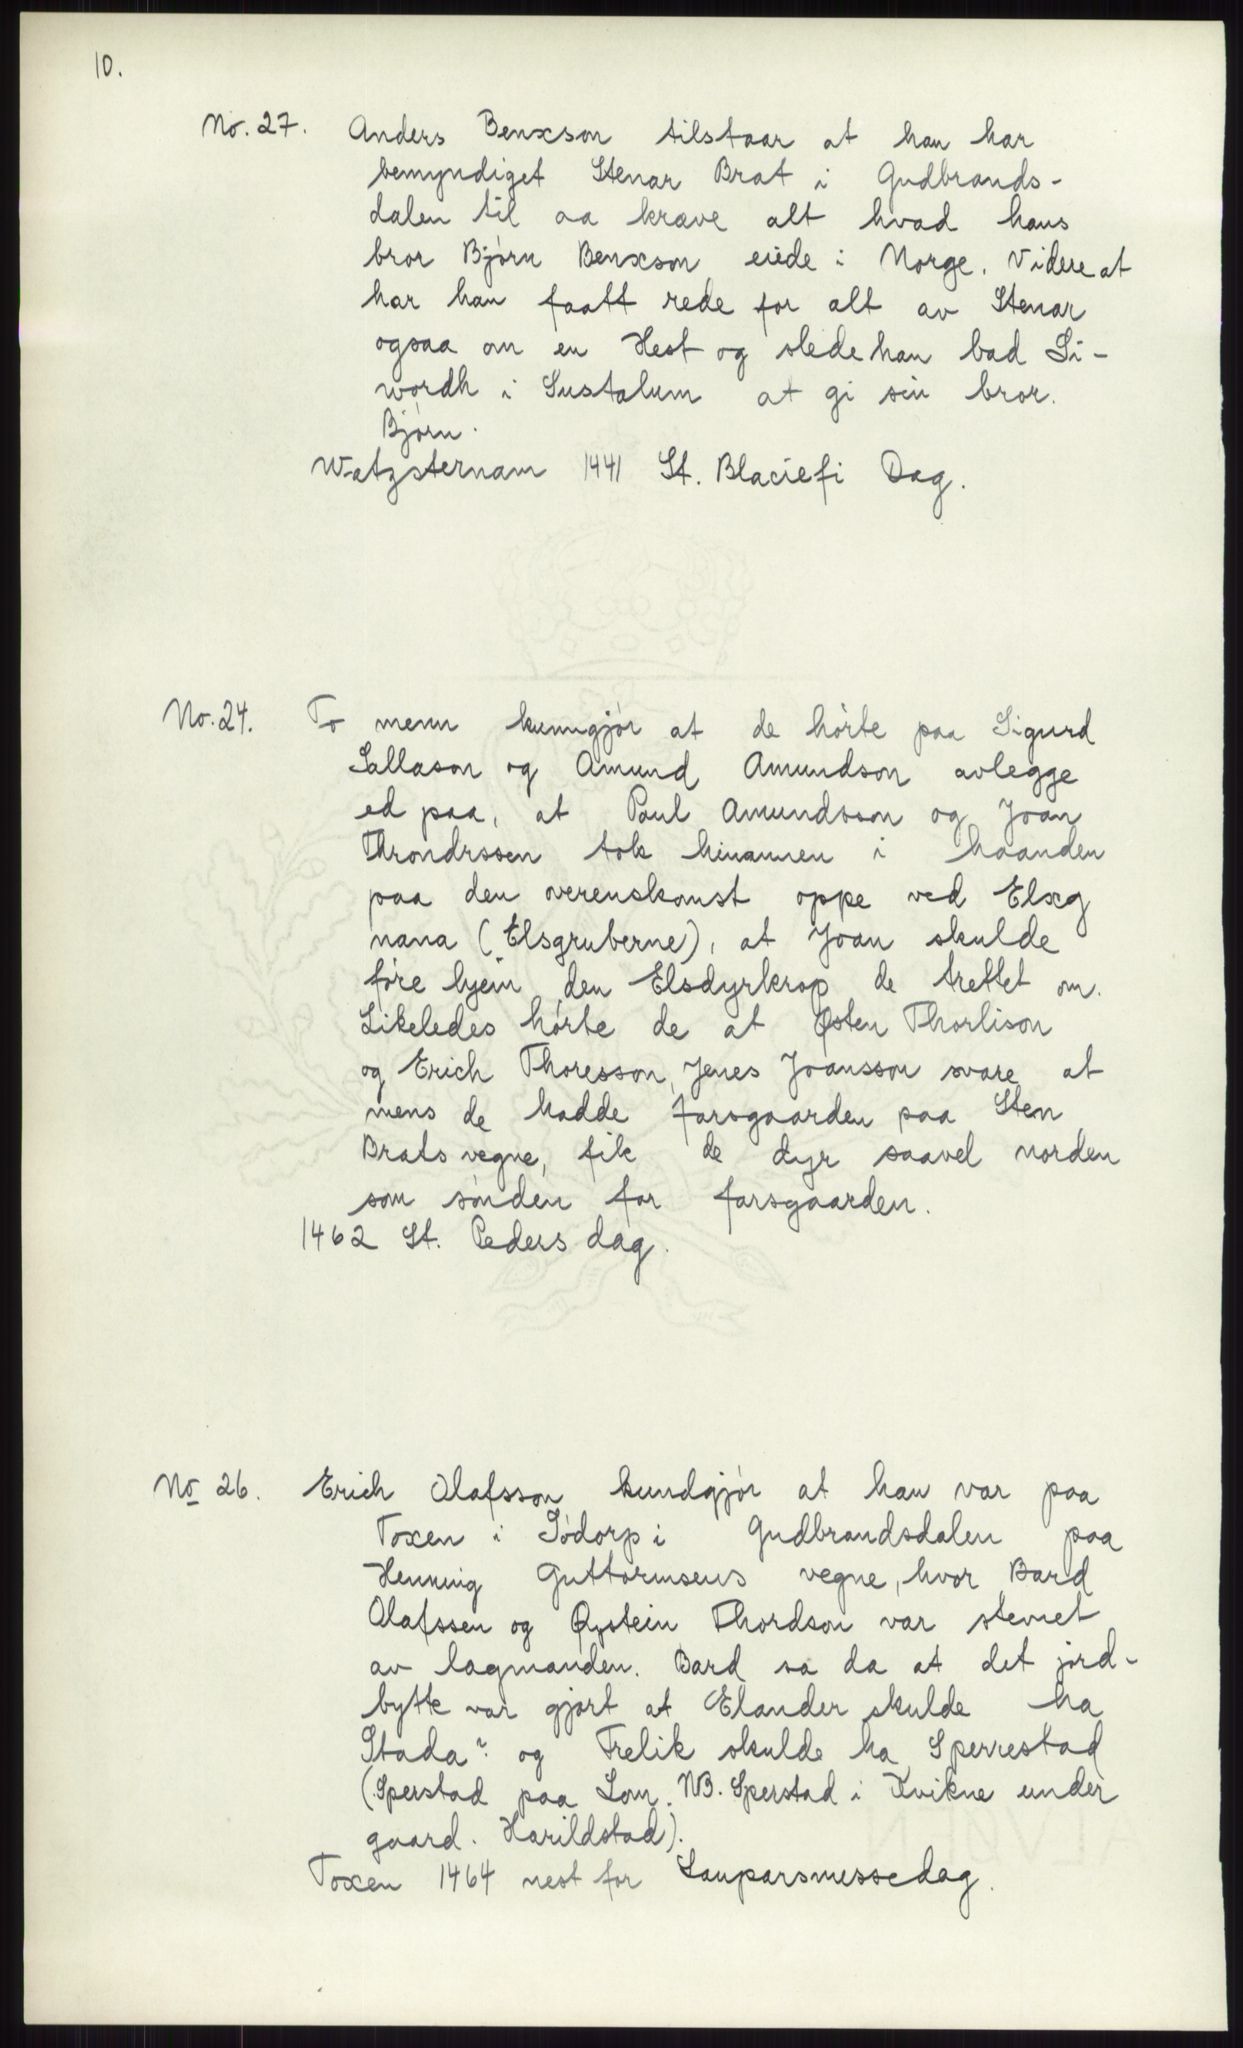 10.
No. 27. Anders Benxson tilstaar at han har
bemyndiget Stenar Brat i Gudbrands-
dalen til aa kræve alt hvad hans
bror Bjørn Benxson eiede i Norge. Videre at
har han faatt rede for alt av Stenar
ogsaa om en Hest og slede han bad Si-
wordh i Sustalum at gi sin bror.
Bjørn.
Watzsternam 1441 St. Blaciefi Dag.
No. 24. To menn kunngjør at de hørte paa Sigurd
Sallason og Amund Amundson avlegge
ed paa, at Paul Amundsson og Joan
Throndrssen tok hinannen i haanden
paa den overenskomst oppe ved Elxg
nana (Elsgruberne), at Joan skulde
føre hjem den Elsdyrkrop de trettet om.
Likeledes hørte de at Østen Thorlison
og Erich Thoresson, Jenes Joansson svare at
mens de hadde farsgaarden paa Sten
Brats vegne, fik de dyr saavel norden
som sønden for farsgaarden.
1462 St. Peders dag.
No 26. Erich Olafsson kundgjør at han var paa
Toxen i Sødorp i Gudbrandsdalen paa
Henning Guttormsens vegne, hvor Bard
Olafssen og Øystein Thordson var stevnet
av lagmanden. Bard sa da at det jord-
bytte var gjort at Elander skulde ha
Stada? og Trelik skulde ha Sperrestad
(Sperstad paa Lom. NB. Sperstad i Kvikne under
gaard. Harildstad).
Toxen 1464 nest for Lauparsmessedag.